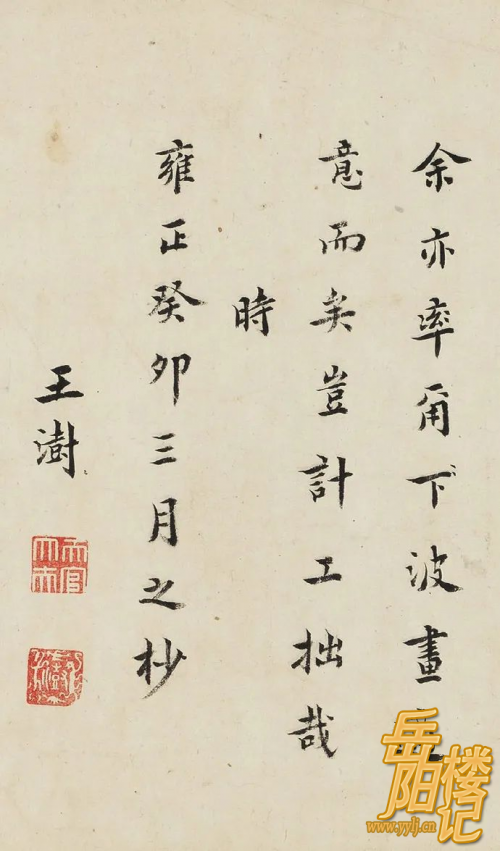 余亦率甬下波畫
意而矣豈計工拙哉
時
雍正癸卯三月之杪
王澍
岳阳楼记
www.yylj.cn